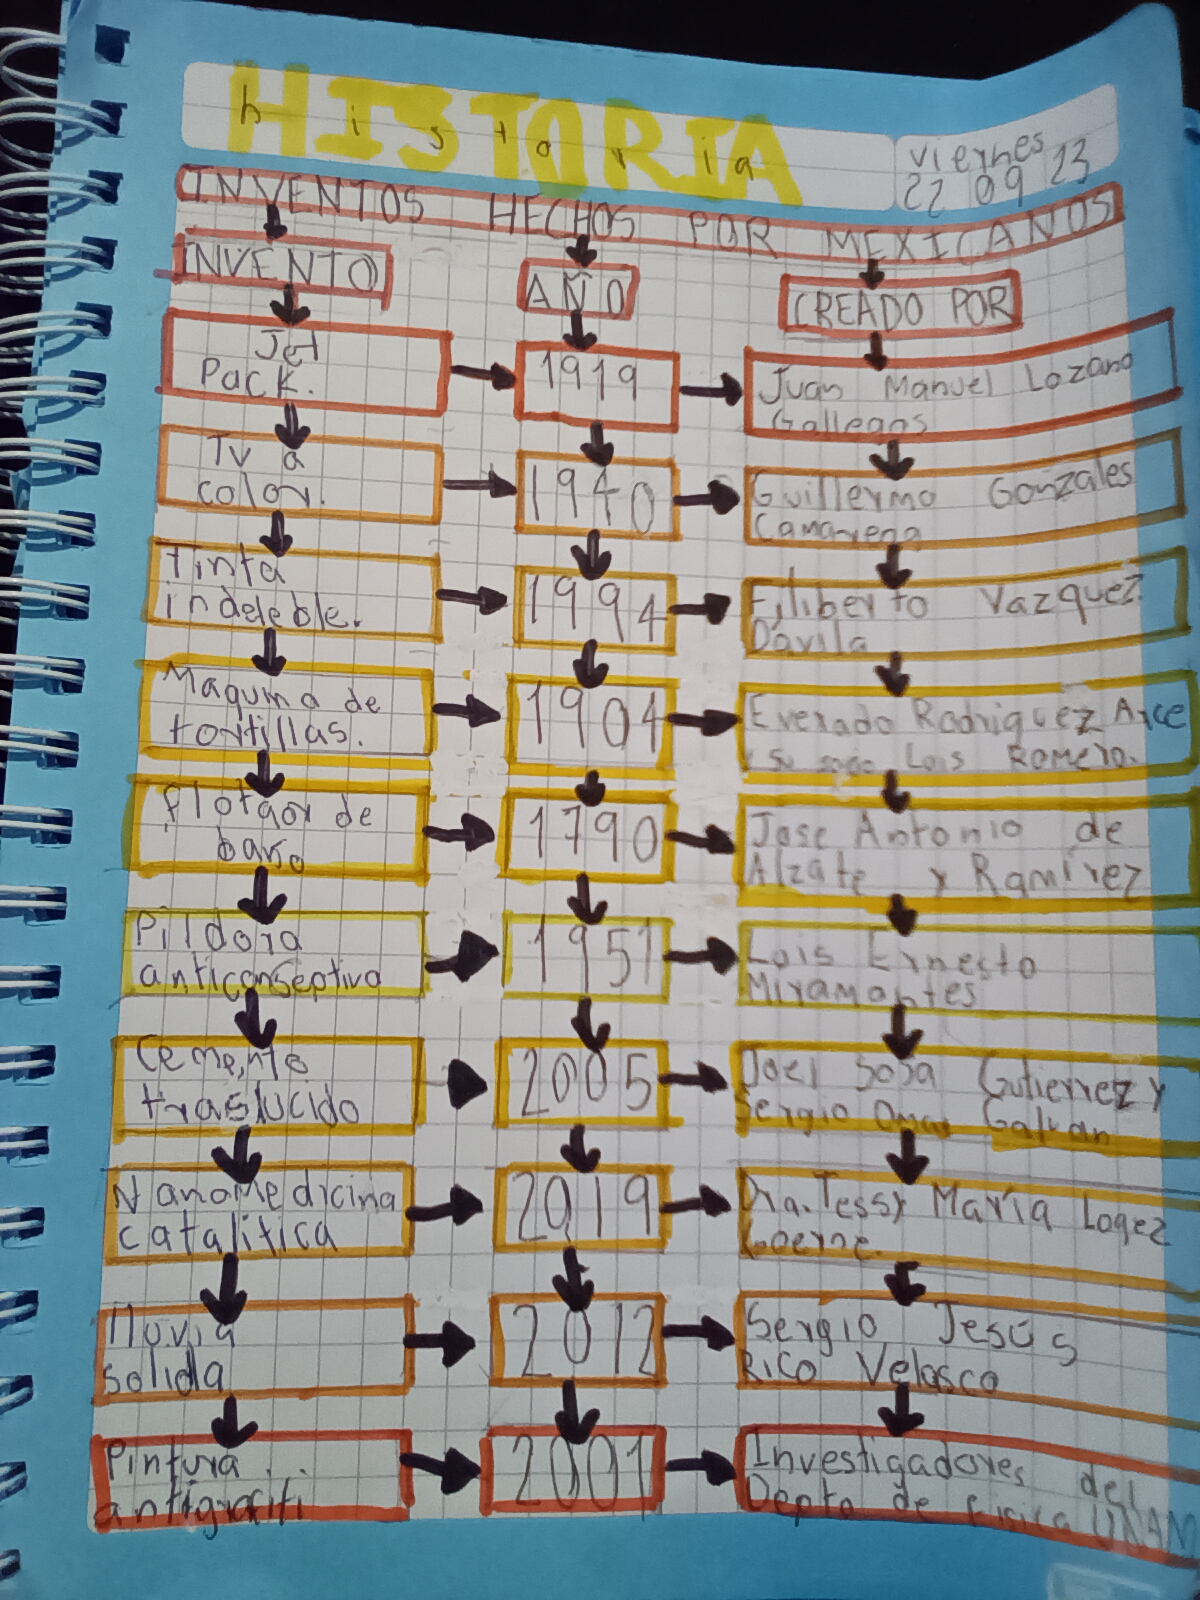 HISTORIA
historia
viernes
22 09 23
INVENTOS HECHOS POR MEXICANOS
INVENTO AÑO CREADO POR
Jet
Pack.
1919
Juan Manuel Lozano
Gallegos
Tv a
color.
1940
Guillermo Gonzales
Camarena
Tinta
indeleble.
1994
Filiberto Vazquez
Dávila
Maquina de
tortillas.
1904
Everado Rodriguez Arce
y su socio Luis Romero.
flotaor de
baño
1790
Jose Antonio de
Alzate y Ramírez
Pildora
anticonseptiva
1951
Luis Ernesto
Miramontes
Cemento
traslucido
2005
Joel Sosa Gutierrez y
Sergio Omar Galvan
Nanomedicina
catalitica
2019
Dra. Tessy María Lopez
Goerne.
lluvia
solida
2012
Sergio Jesús
Rico Velasco
Pintura
antigrafiti
2001
Investigadores del
Depto de Fisica UNAM